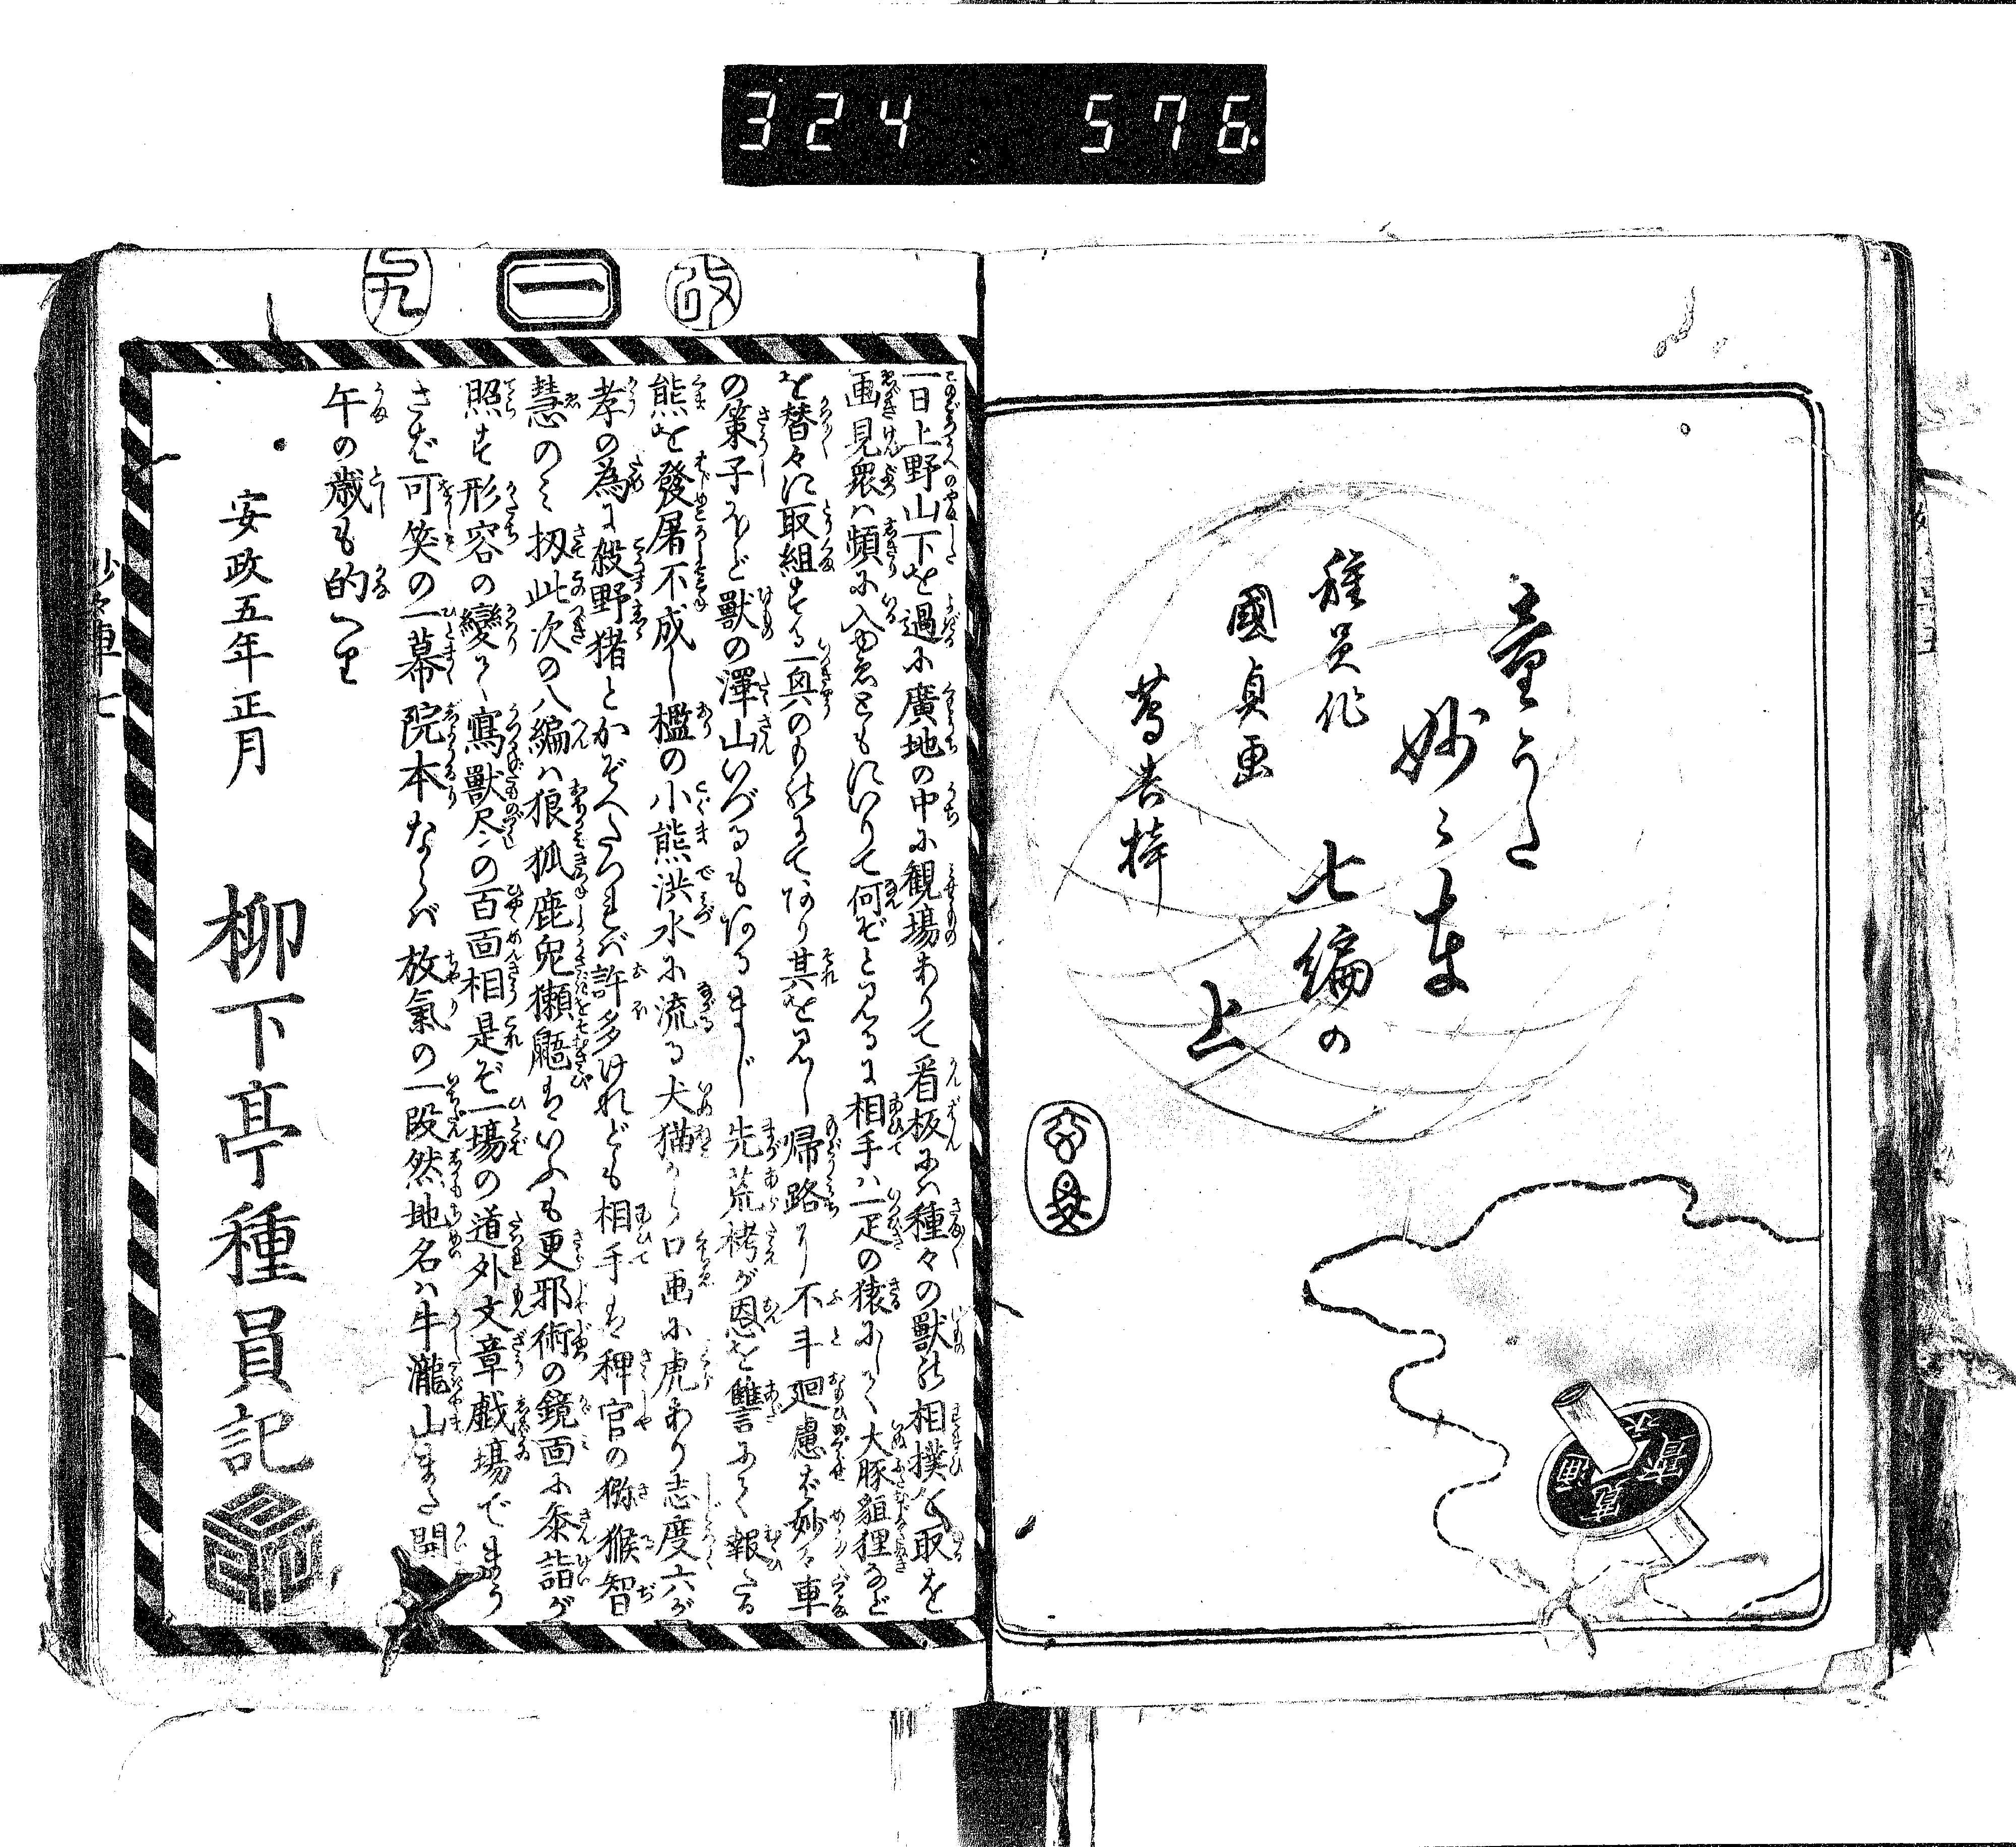 324 576
童うた
妙々車
七編の
上
種員作
國貞画
蔦吉梓
改
一
一日上野山下を過に廣地の中に観場ありて看板には種々の獣の相撲を取を
画見衆は頻に入ゆゑともにいりて何ぞと見るに相手は一疋の猿にして大豚貒狸など
を替々に取組する一興のものにてありき其を見し帰路に不斗廻慮ば妙々車
の策子ほど獣の澤山いづるもあるまじ先荒栲が恩を讐にて報たる
熊を發屠不成し檻の小熊洪水に流る犬猫から口画に虎あり志度六が
孝の為に殺野猪とかぞへたつれば許多けれども相手は稗官の猕猴智
慧のみ扨此次の八編は狼狐鹿兎獺鼯はいふも更邪術の鏡面に黍詣が
照す形容の變る寫獣尽の百面相是ぞ一場の道外文章戯場でまう
さば可笑の一幕院本ならば放氣の一段然地名は牛瀧山また開
午の歳も的り
安政五年正月
柳下亭種員記
妙々車七